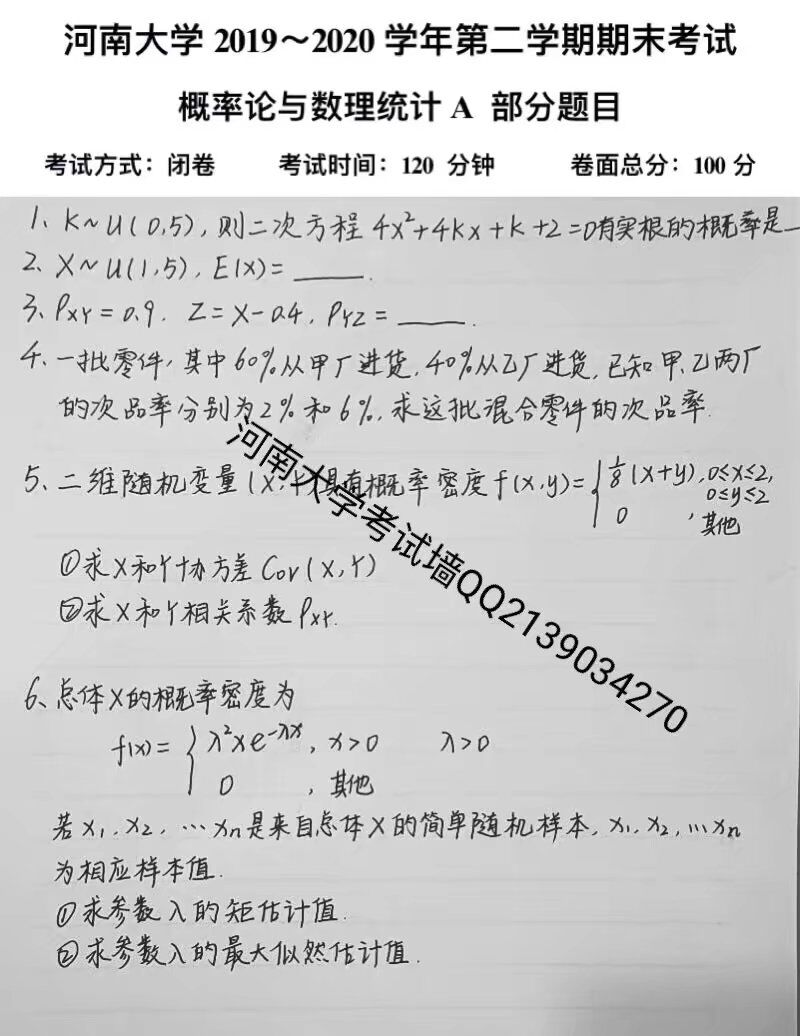 河南大学 2019～2020 学年第二学期期末考试
概率论与数理统计 A 部分题目
考试方式：闭卷 考试时间：120 分钟 卷面总分：100 分
1、K~U(0,5)，则二次方程 4x²+4Kx+K+2=0有实根的概率是_
2、X~U(1,5)，E(X)=____.
3、ρXY=0.9. Z=X-0.4，ρYZ=____.
4、一批零件，其中60%从甲厂进货，40%从乙厂进货，已知甲、乙两厂
的次品率分别为2%和6%，求这批混合零件的次品率.
5、二维随机变量(X,Y)具有概率密度f(x,y)={ 1/8(x+y), 0≤x≤2,
0≤y≤2
0 , 其他
①求X和Y协方差Cov(X,Y)
②求X和Y相关系数ρXY.
河南大学考试墙QQ2139034270
6、总体X的概率密度为
f(x)={ λ²xe^-λx, x>0 λ>0
0 , 其他
若x1,x2,…xn是来自总体X的简单随机样本，x1,x2,…xn
为相应样本值.
①求参数λ的矩估计值.
②求参数λ的最大似然估计值.